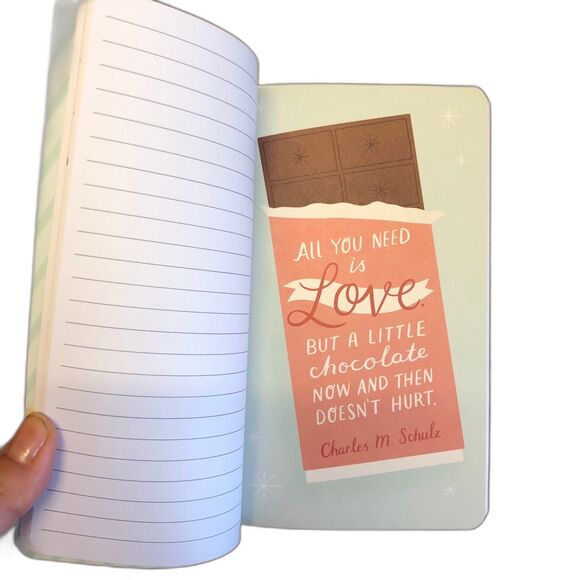 ALL YOU NEED
is
Love.
BUT A LITTLE
chocolate
NOW AND THEN
DOESN'T HURT.
Charles M. Schulz